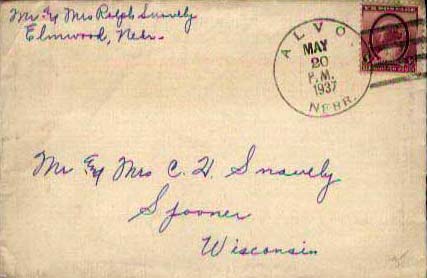 Mr & Mrs Ralph Snavely
Elmwood, Nebr.
ALVO
MAY
20
P.M.
1937
NEBR.
Mr & Mrs C. H. Snavely
Spooner
Wisconsin